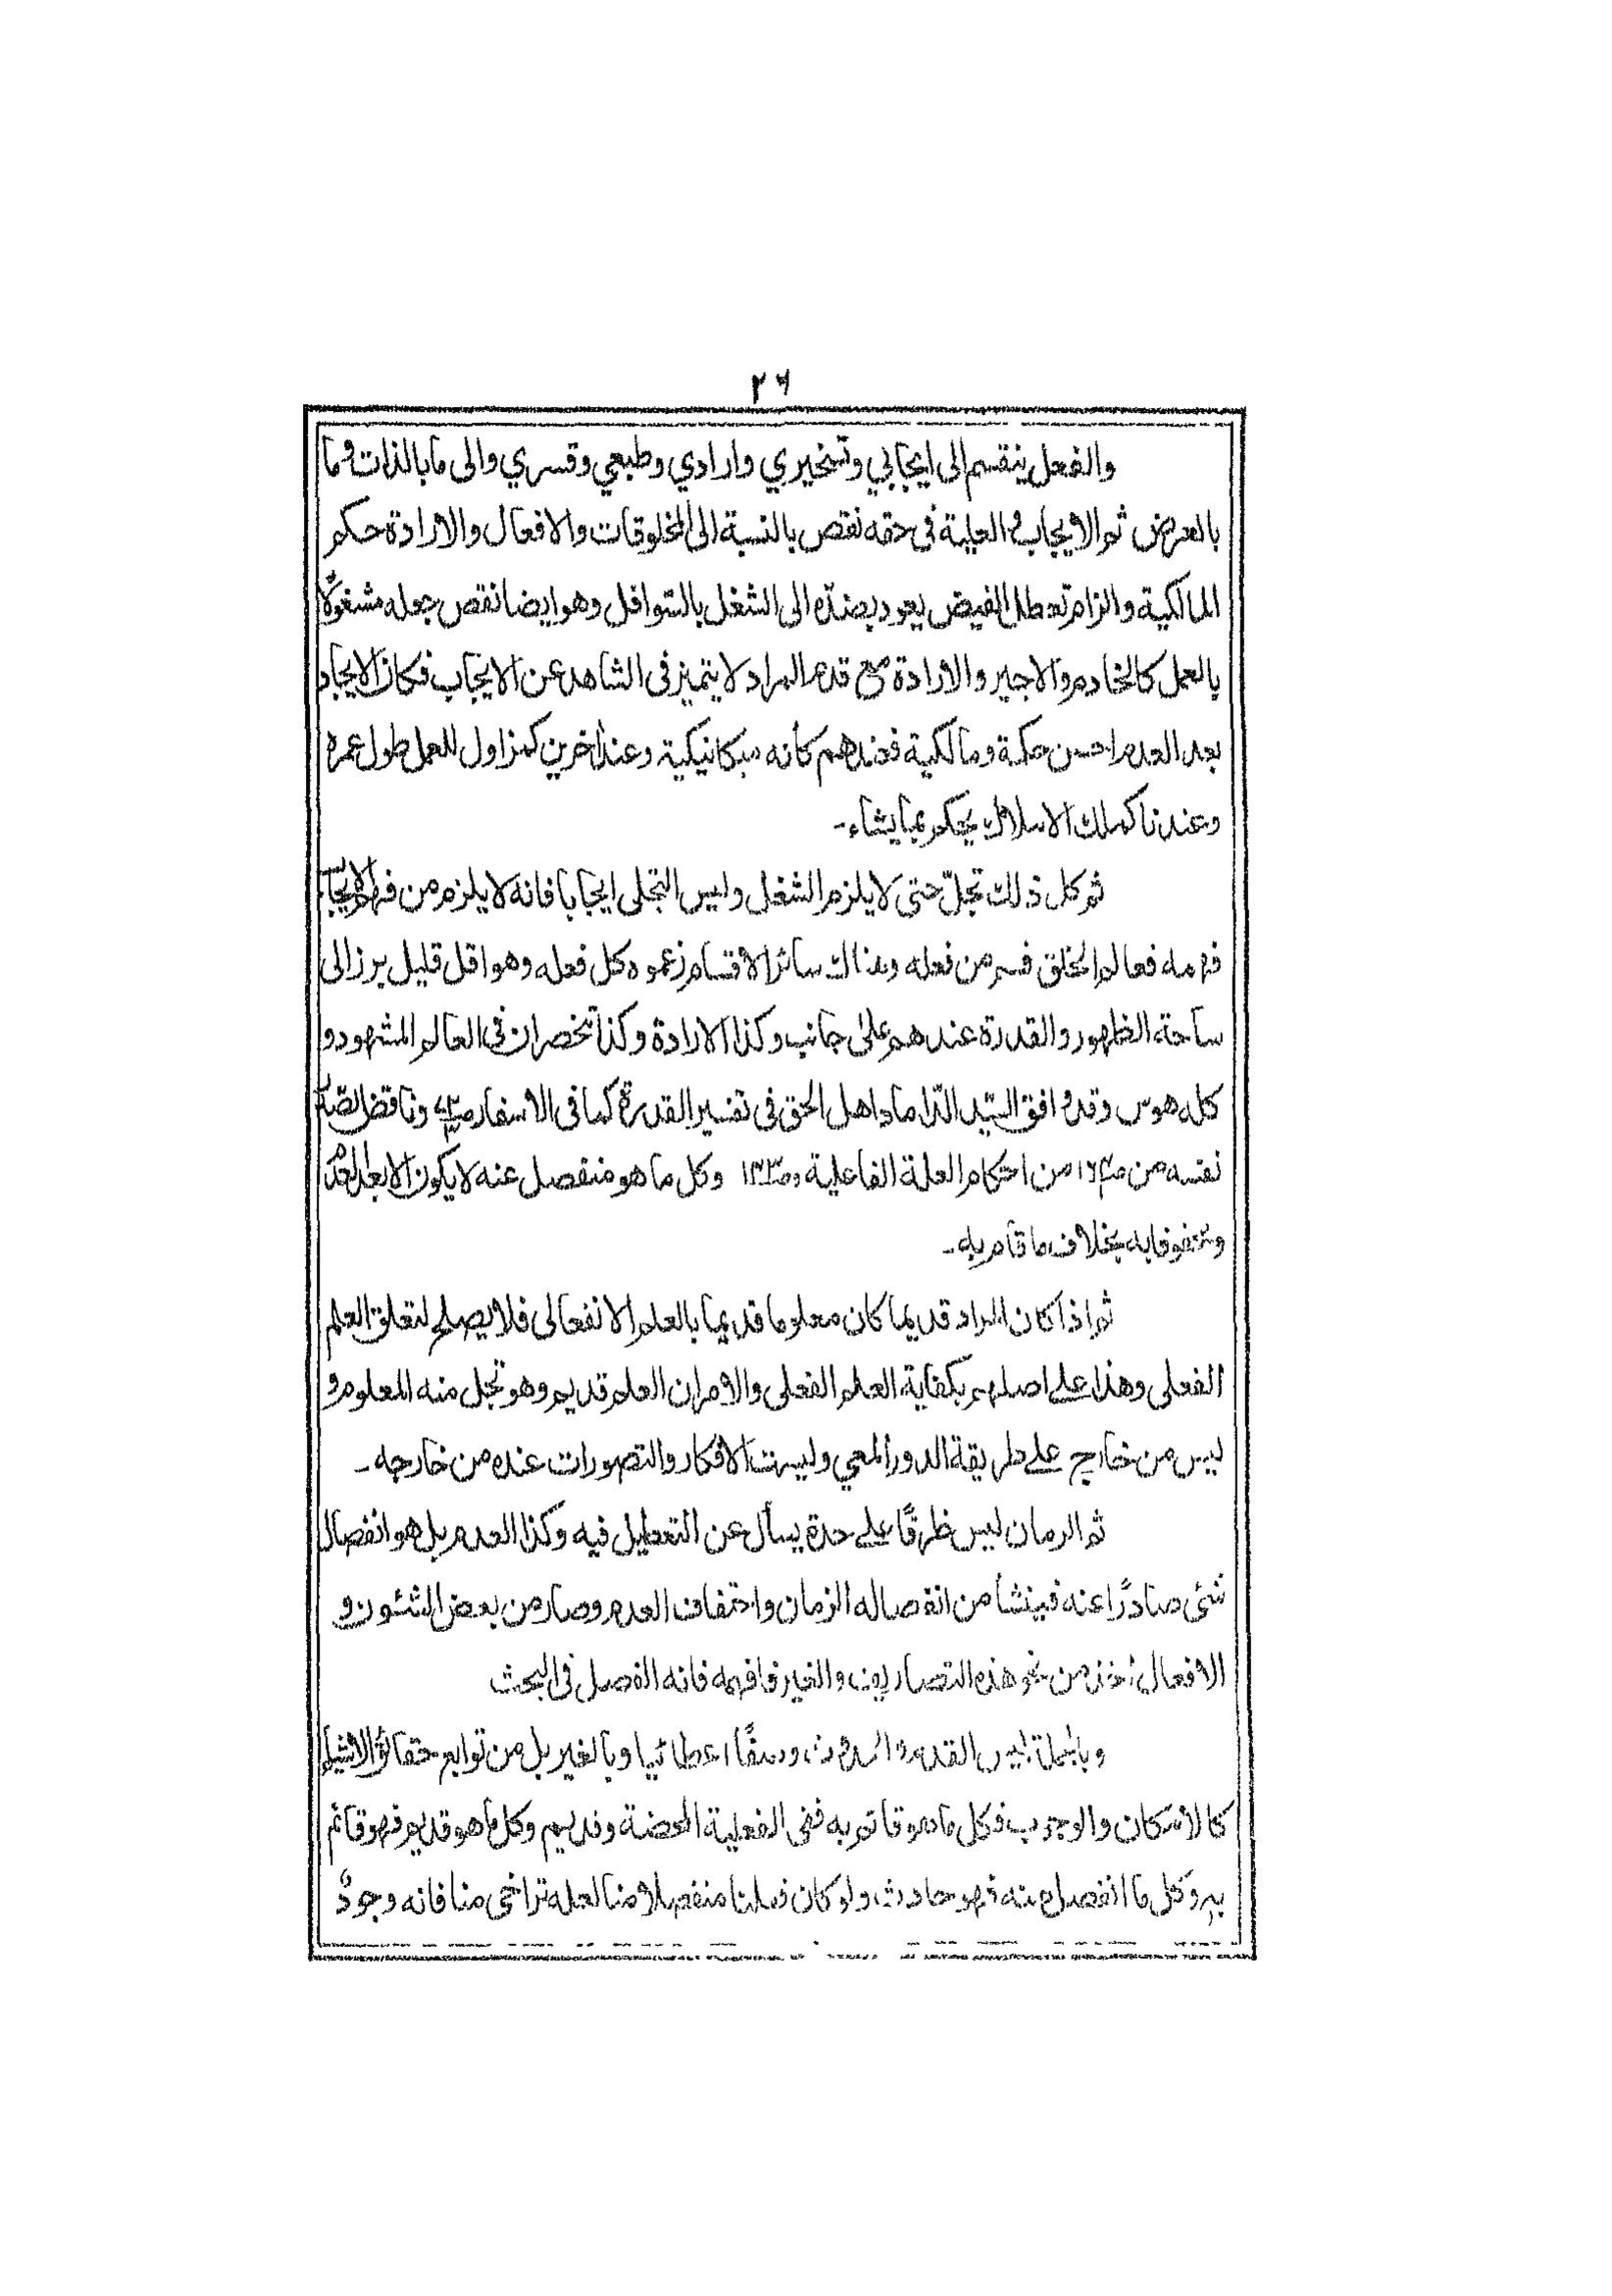 ٢٦
والفعل ينقسم الى ايجابي وتسخيري وارادي وطبعي وقسري والى ما بالذات وما
بالعرض ثم الايجاب و العلية فى حقه نقص بالنسبة الى المخلوقات والافعال والارادة حكم
المالكية والزام تعطل الفيض يعود بضده الى الشغل بالسوافل وهو ايضا نقص جعله مشغولًا
بالعمل كالخادم والاجير والارادة مع قدم المراد لا يتميز فى الشاهد عن الايجاب فكان الايجاد
بعد العدم احسن حكمة ومالكية فعندهم كأنه ميكانيكية وعند اٰخرين كمزاول للعمل طول عمره
وعندنا كملك الاملاك يحكم بما يشاء-
ثم كل ذلك تجلّ حتى لا يلزم الشغل وليس التجلى ايجابا فانه لا يلزم من فهم الايجاب
فهمه فعالم الخلق قسم من فعله وهناك سائر الاقسام زعموه كل فعله وهو اقل قليل برز الى
ساحة الظهور والقدرة عندهم على جانب وكذا الارادة وكذا تخصران فى العالم المشهود و
كله هوس وقد وافق السيد الداماد اهل الحق فى تفسير القدرة كما فى الاسفار وناقض القبا
نفسه من من احكام العلة الفاعلية وكل ما هو منفصل عنه لا يكون الا بعد العدم
بخلاف ما قام به-
ثم اذا كان المراد قديما كان معلوما قديما بالعلم الانفعالى فلا يصلح لتعلق العلم
الفعلى وهذا على اصلهم بكفاية العلم الفعلى والامر ان العلم قديم وهو تجل منه المعلوم و
ليس من خارج على طريقة الدور المعي وليست الافكار والتصورات عنده من خارجه -
ثم الزمان ليس ظرفًا على حدة يسأل عن التعطيل فيه وكذا العدم بل هو انفصال
شئى صادرًا عنه فينشأ من انفصاله الزمان واحتفاف العدم وصار من بعض الشئون و
الافعال اخذ من نحو هذه التصاريف والغير فافهمه فانه الفصل فى البحث
وبالجملة ليس القدم و الحدوث وصفًا اعطائيا وبالغير بل من توابع حقائق الاشياء
كالامكان والوجوب فكل ما هو قائم به ففى الفعلية المحضة وقديم وكل ما هو قديم فهو قائم
به وكل ما انفصل منه فهو حادث ولو كان فعلنا منفصلا منا لعله تراخى منا فانه وجود